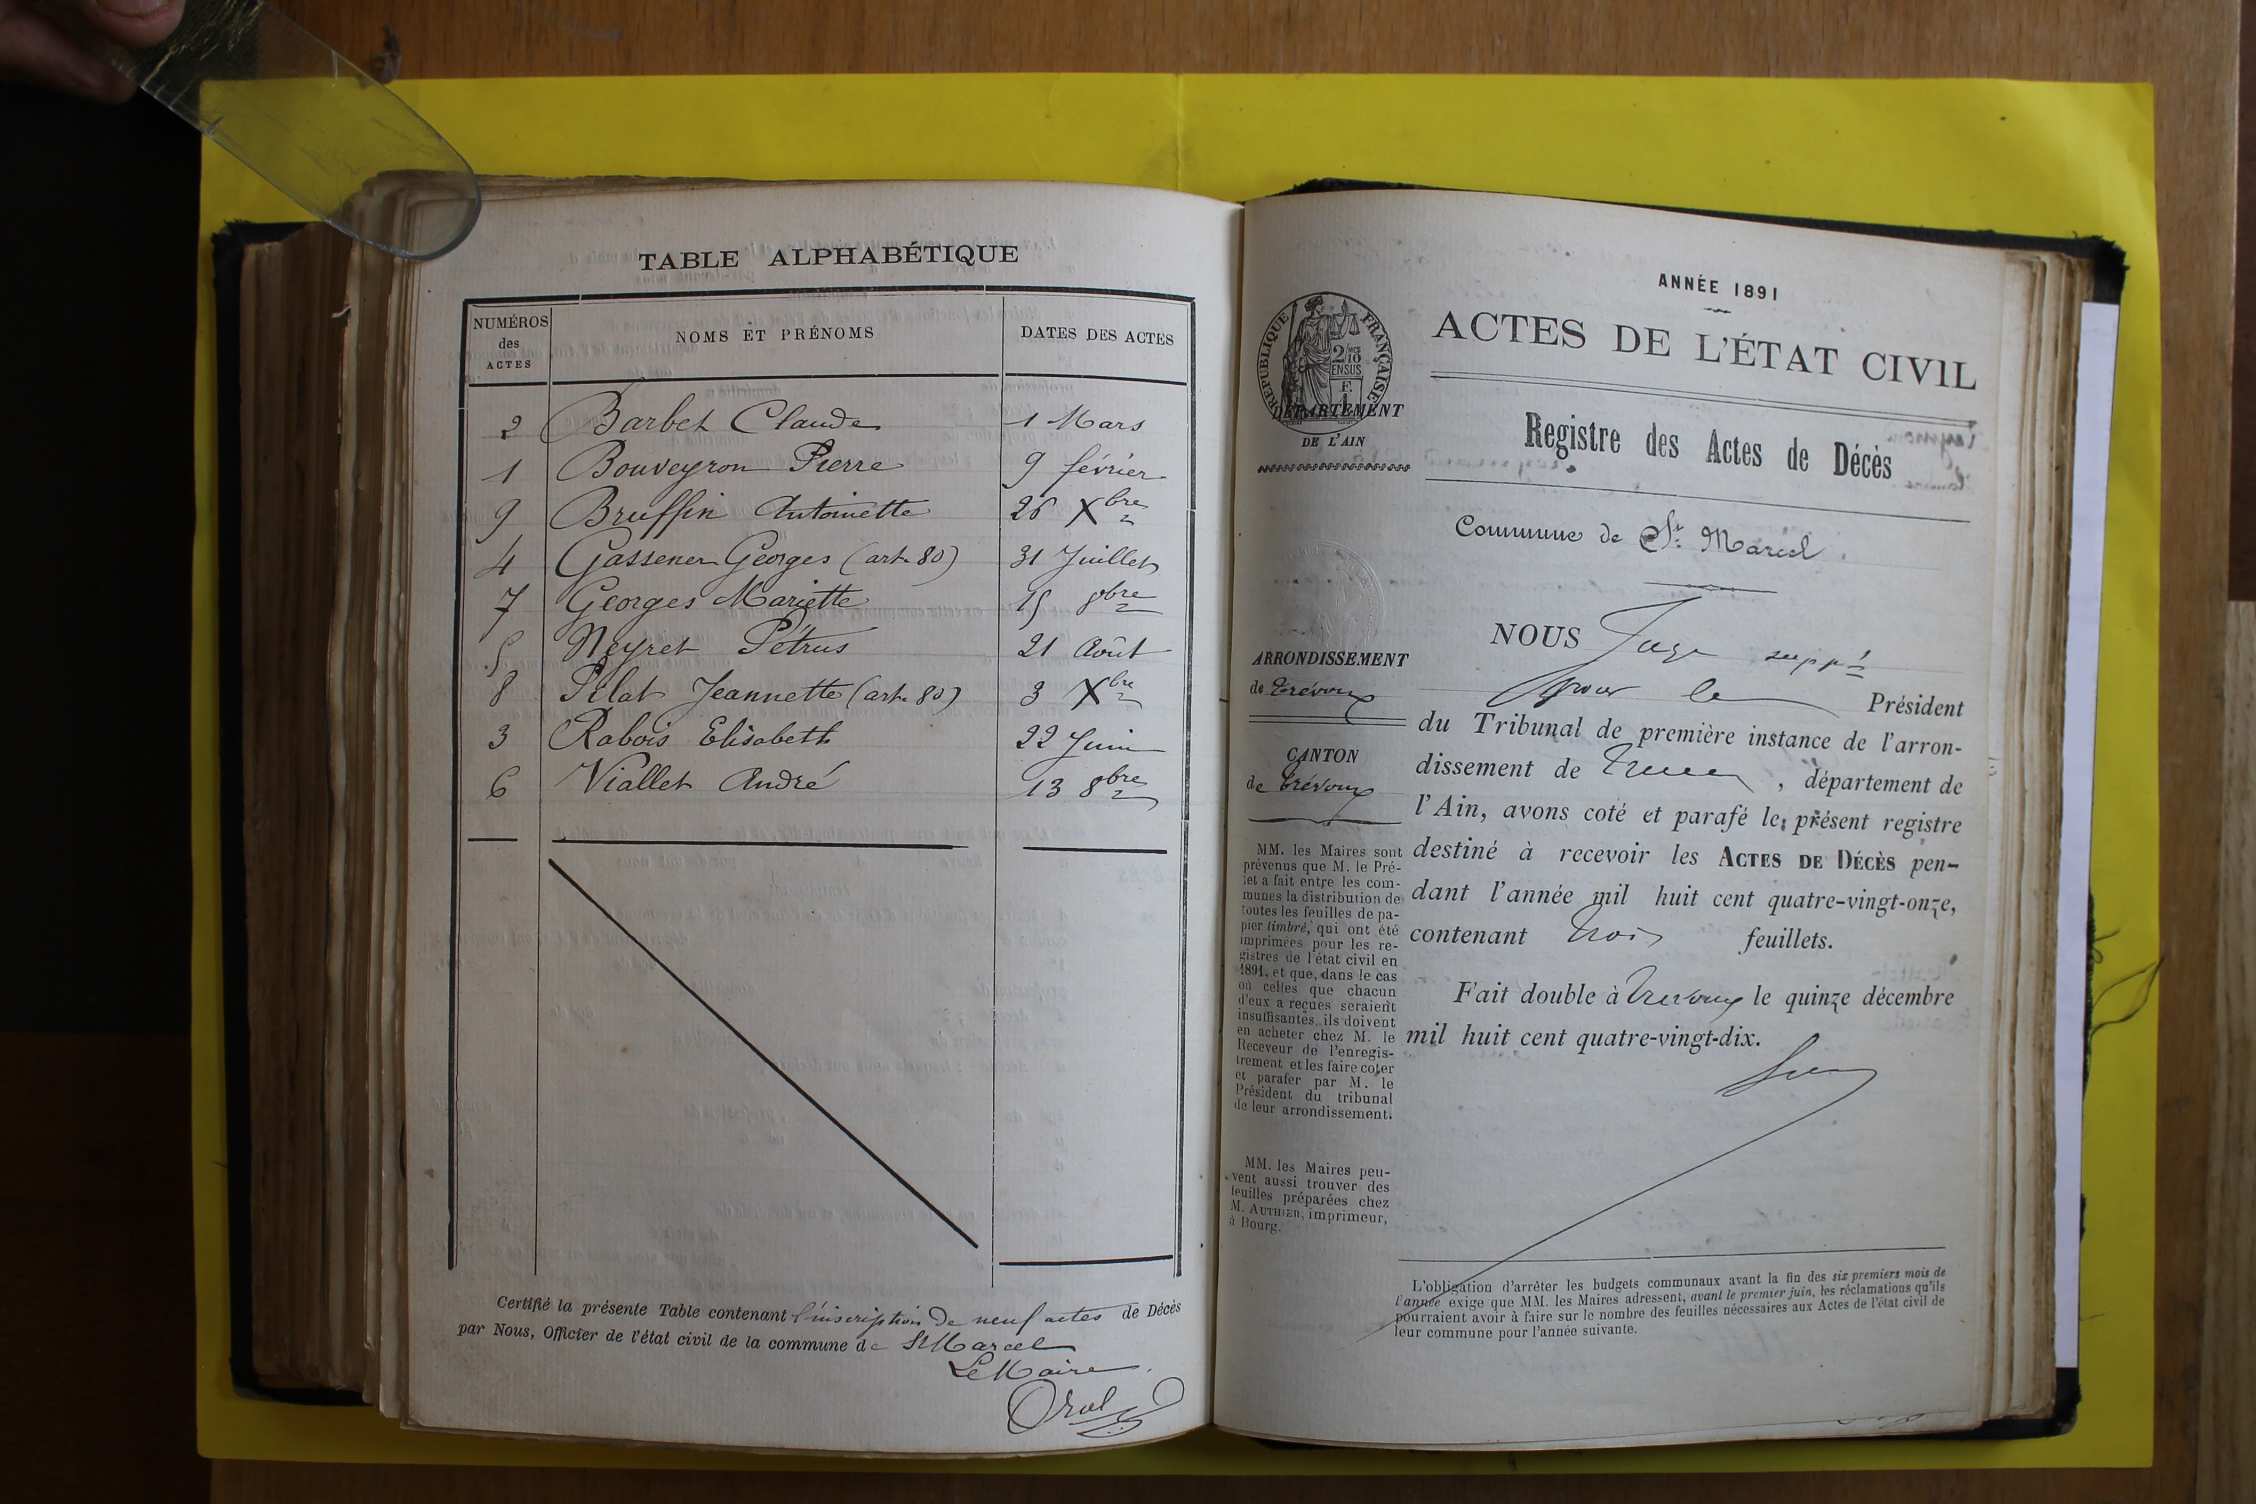 TABLE ALPHABÉTIQUE
NUMÉROS des ACTES NOMS ET PRÉNOMS DATES DES ACTES
2 Barbet Claude 1 Mars
1 Bouveyron Pierre 9 février
9 Bruffin Antoinette 26 Xbre
4 Gassener Georges (art. 80) 31 Juillet
7 Georges Mariette 15 8bre
5 Neyret Pétrus 21 Août
8 Pélat Jeannette (art. 80) 3 Xbre
3 Rabois Elisabeth 22 Juin
6 Viallet André 13 8bre
Certifié la présente Table contenant l'inscription de neuf actes de Décès
par Nous, Officier de l'état civil de la commune de St Marcel
Le Maire
ANNÉE 1891
ACTES DE L'ÉTAT CIVIL
RÉPUBLIQUE FRANÇAISE
DÉPARTEMENT
DE L'AIN
Registre des Actes de Décès
Commune de St. Marcel
ARRONDISSEMENT
de Trévoux
CANTON
de Trévoux
MM. les Maires sont
prévenus que M. le Pré-
fet a fait entre les com-
munes la distribution de
toutes les feuilles de pa-
pier timbré, qui ont été
imprimées pour les re-
gistres de l'état civil en
1891, et que, dans le cas
où celles que chacun
d'eux a reçues seraient
insuffisantes, ils doivent
en acheter chez M. le
Receveur de l'enregis-
trement et les faire coter
et parafer par M. le
Président du tribunal
de leur arrondissement.
MM. les Maires peu-
vent aussi trouver des
feuilles préparées chez
M. AUTHIER, imprimeur,
à Bourg.
NOUS Juge suppt
pour le Président
du Tribunal de première instance de l'arron-
dissement de Trévoux, département de
l'Ain, avons coté et parafé le présent registre
destiné à recevoir les ACTES DE DÉCÈS pen-
dant l'année mil huit cent quatre-vingt-onze,
contenant trois feuillets.
Fait double à Trévoux le quinze décembre
mil huit cent quatre-vingt-dix.
L'obligation d'arrêter les budgets communaux avant la fin des six premiers mois de
l'année exige que MM. les Maires adressent, avant le premier juin, les réclamations qu'ils
pourraient avoir à faire sur le nombre des feuilles nécessaires aux Actes de l'état civil de
leur commune pour l'année suivante.